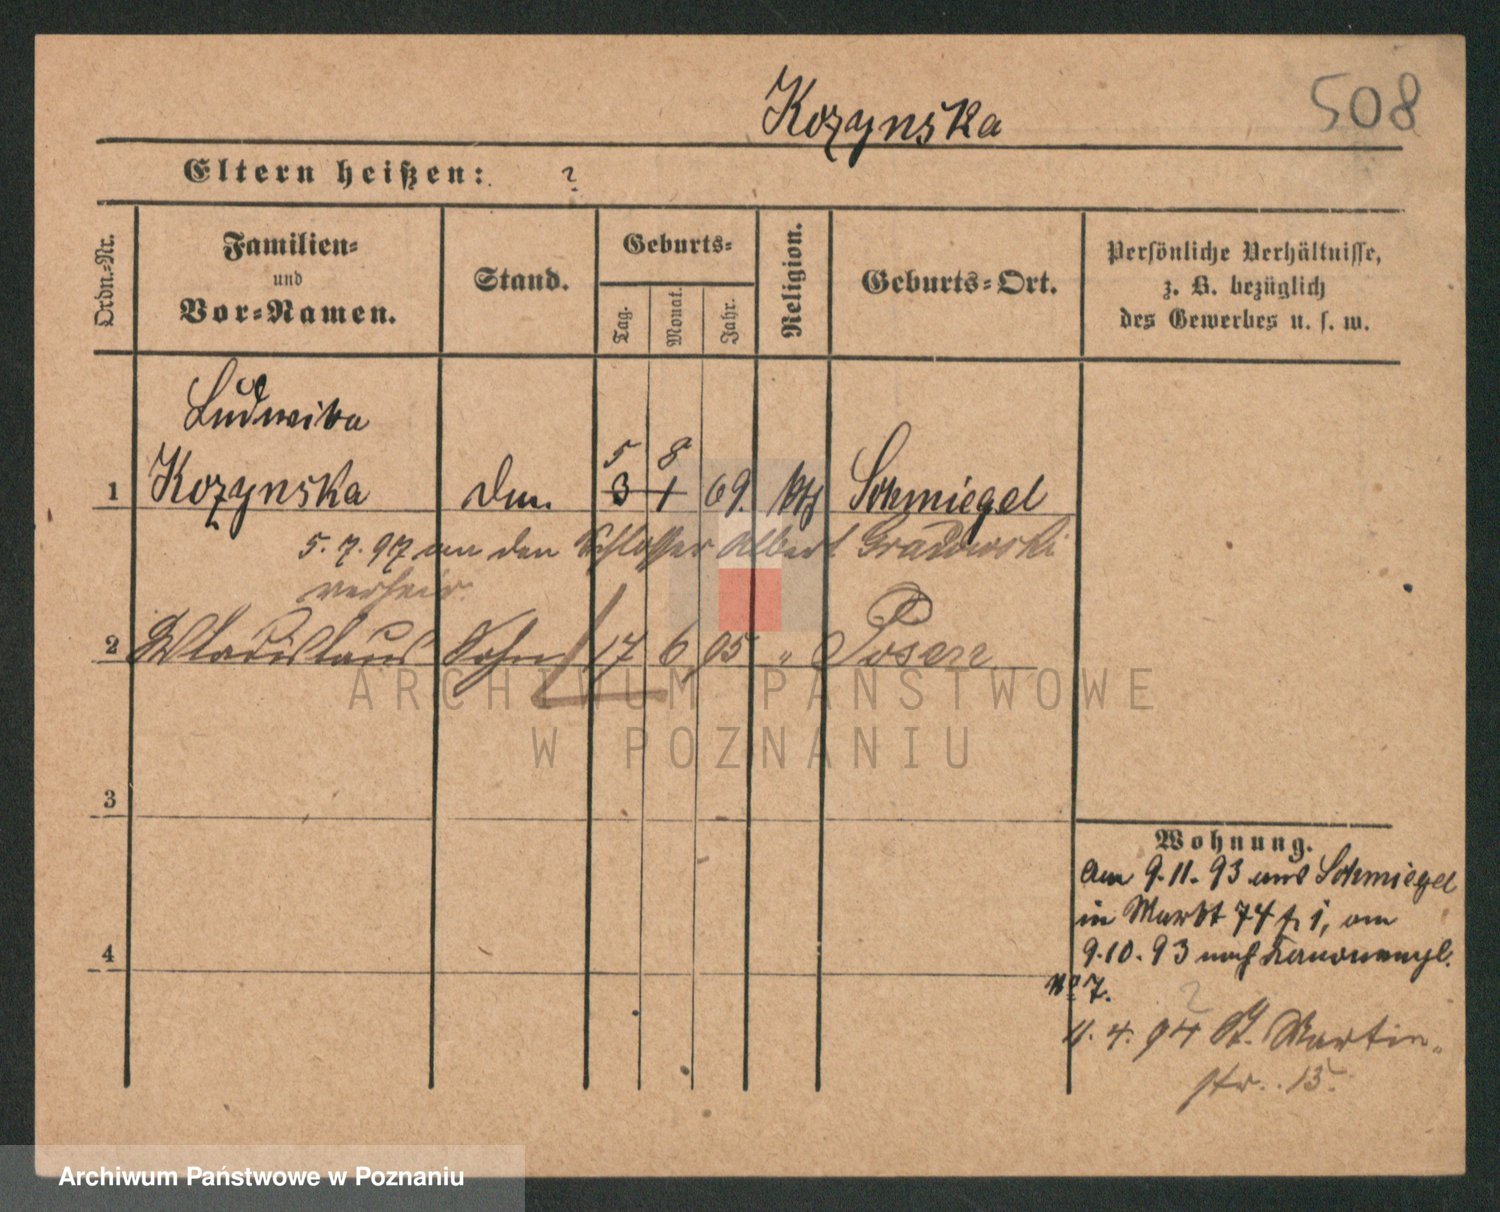 Kozynska
508
Eltern heißen: ?
Ordn.-Nr.
Familien-
und
Vor-Namen.
Stand.
Geburts-
Tag.
Monat.
Jahr.
Religion.
Geburts-Ort.
Persönliche Verhältnisse,
z. B. bezüglich
des Gewerbes u. s. w.
Ludwika
5 8
1 Kozynska 3 1 69. kth Schmiegel
5.7.97 an den Schlosser Albert Gradowski
verheir.
2 Wladislaus Sohn 17 6 95 " Posen
3
4
Wohnung.
Am 9.11.93 aus Schmiegel
in Markt 74 am
9.10.93 nach
No 7.
?
11.4.94 St. Martin-
str. 13.
ARCHIWUM PAŃSTWOWE
W POZNANIU
Archiwum Państwowe w Poznaniu